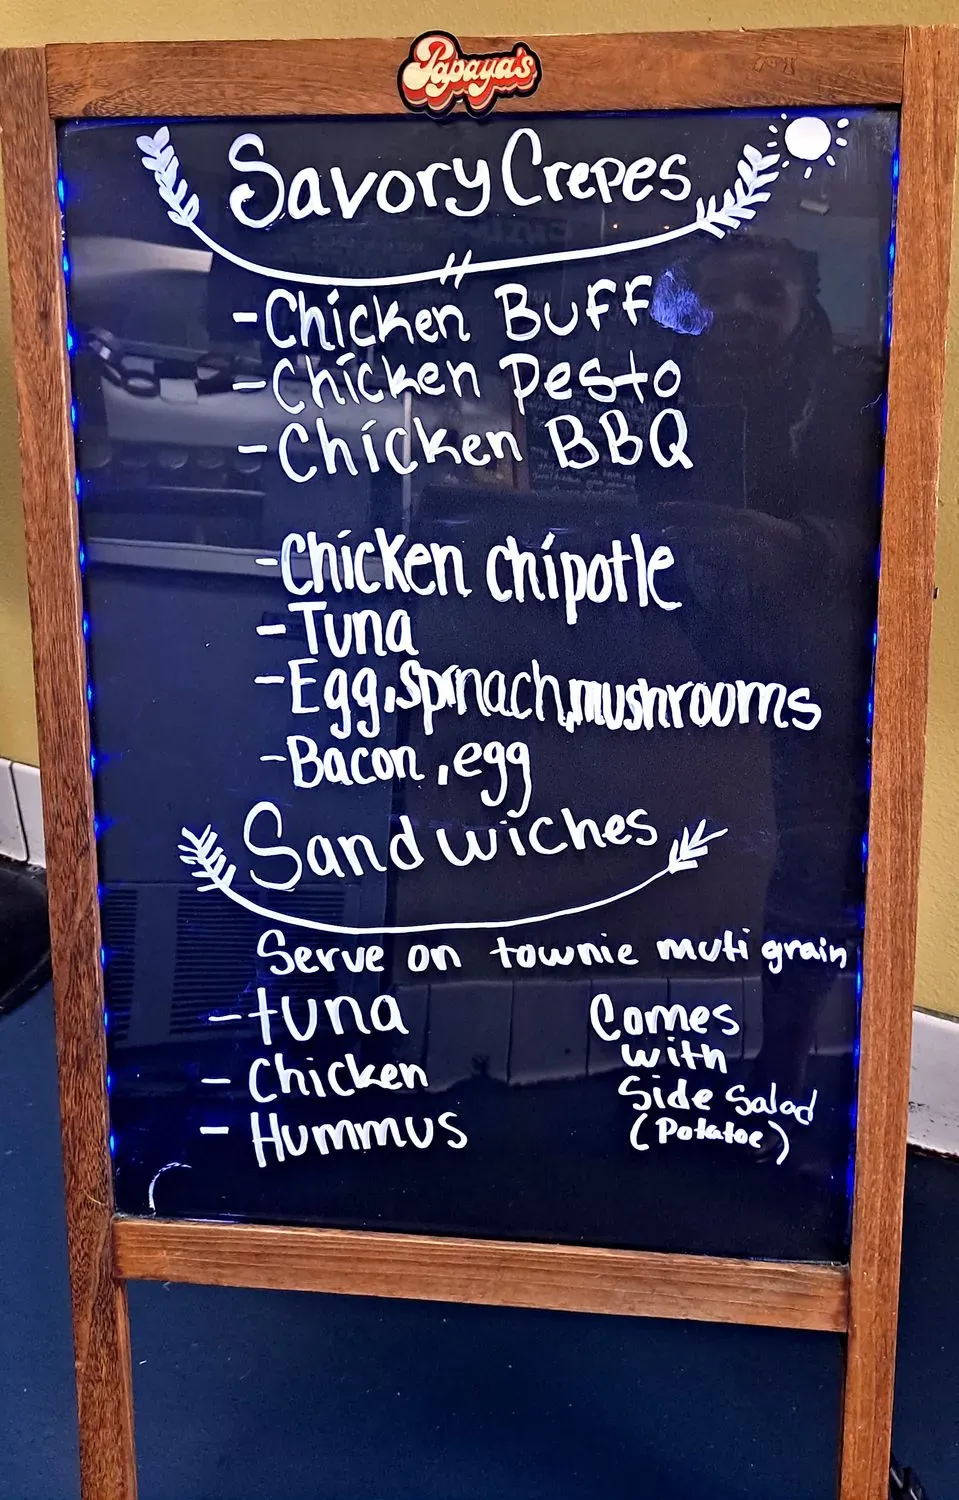 Papaya's
Savory Crepes
-Chicken Buff
-Chicken Pesto
-Chicken BBQ
-Chicken chipotle
-Tuna
-Egg,spinach,mushrooms
-Bacon,egg
Sandwiches
Serve on townie muti grain
-tuna
- Chicken
- Hummus
Comes
with
Side Salad
(Potatoe)